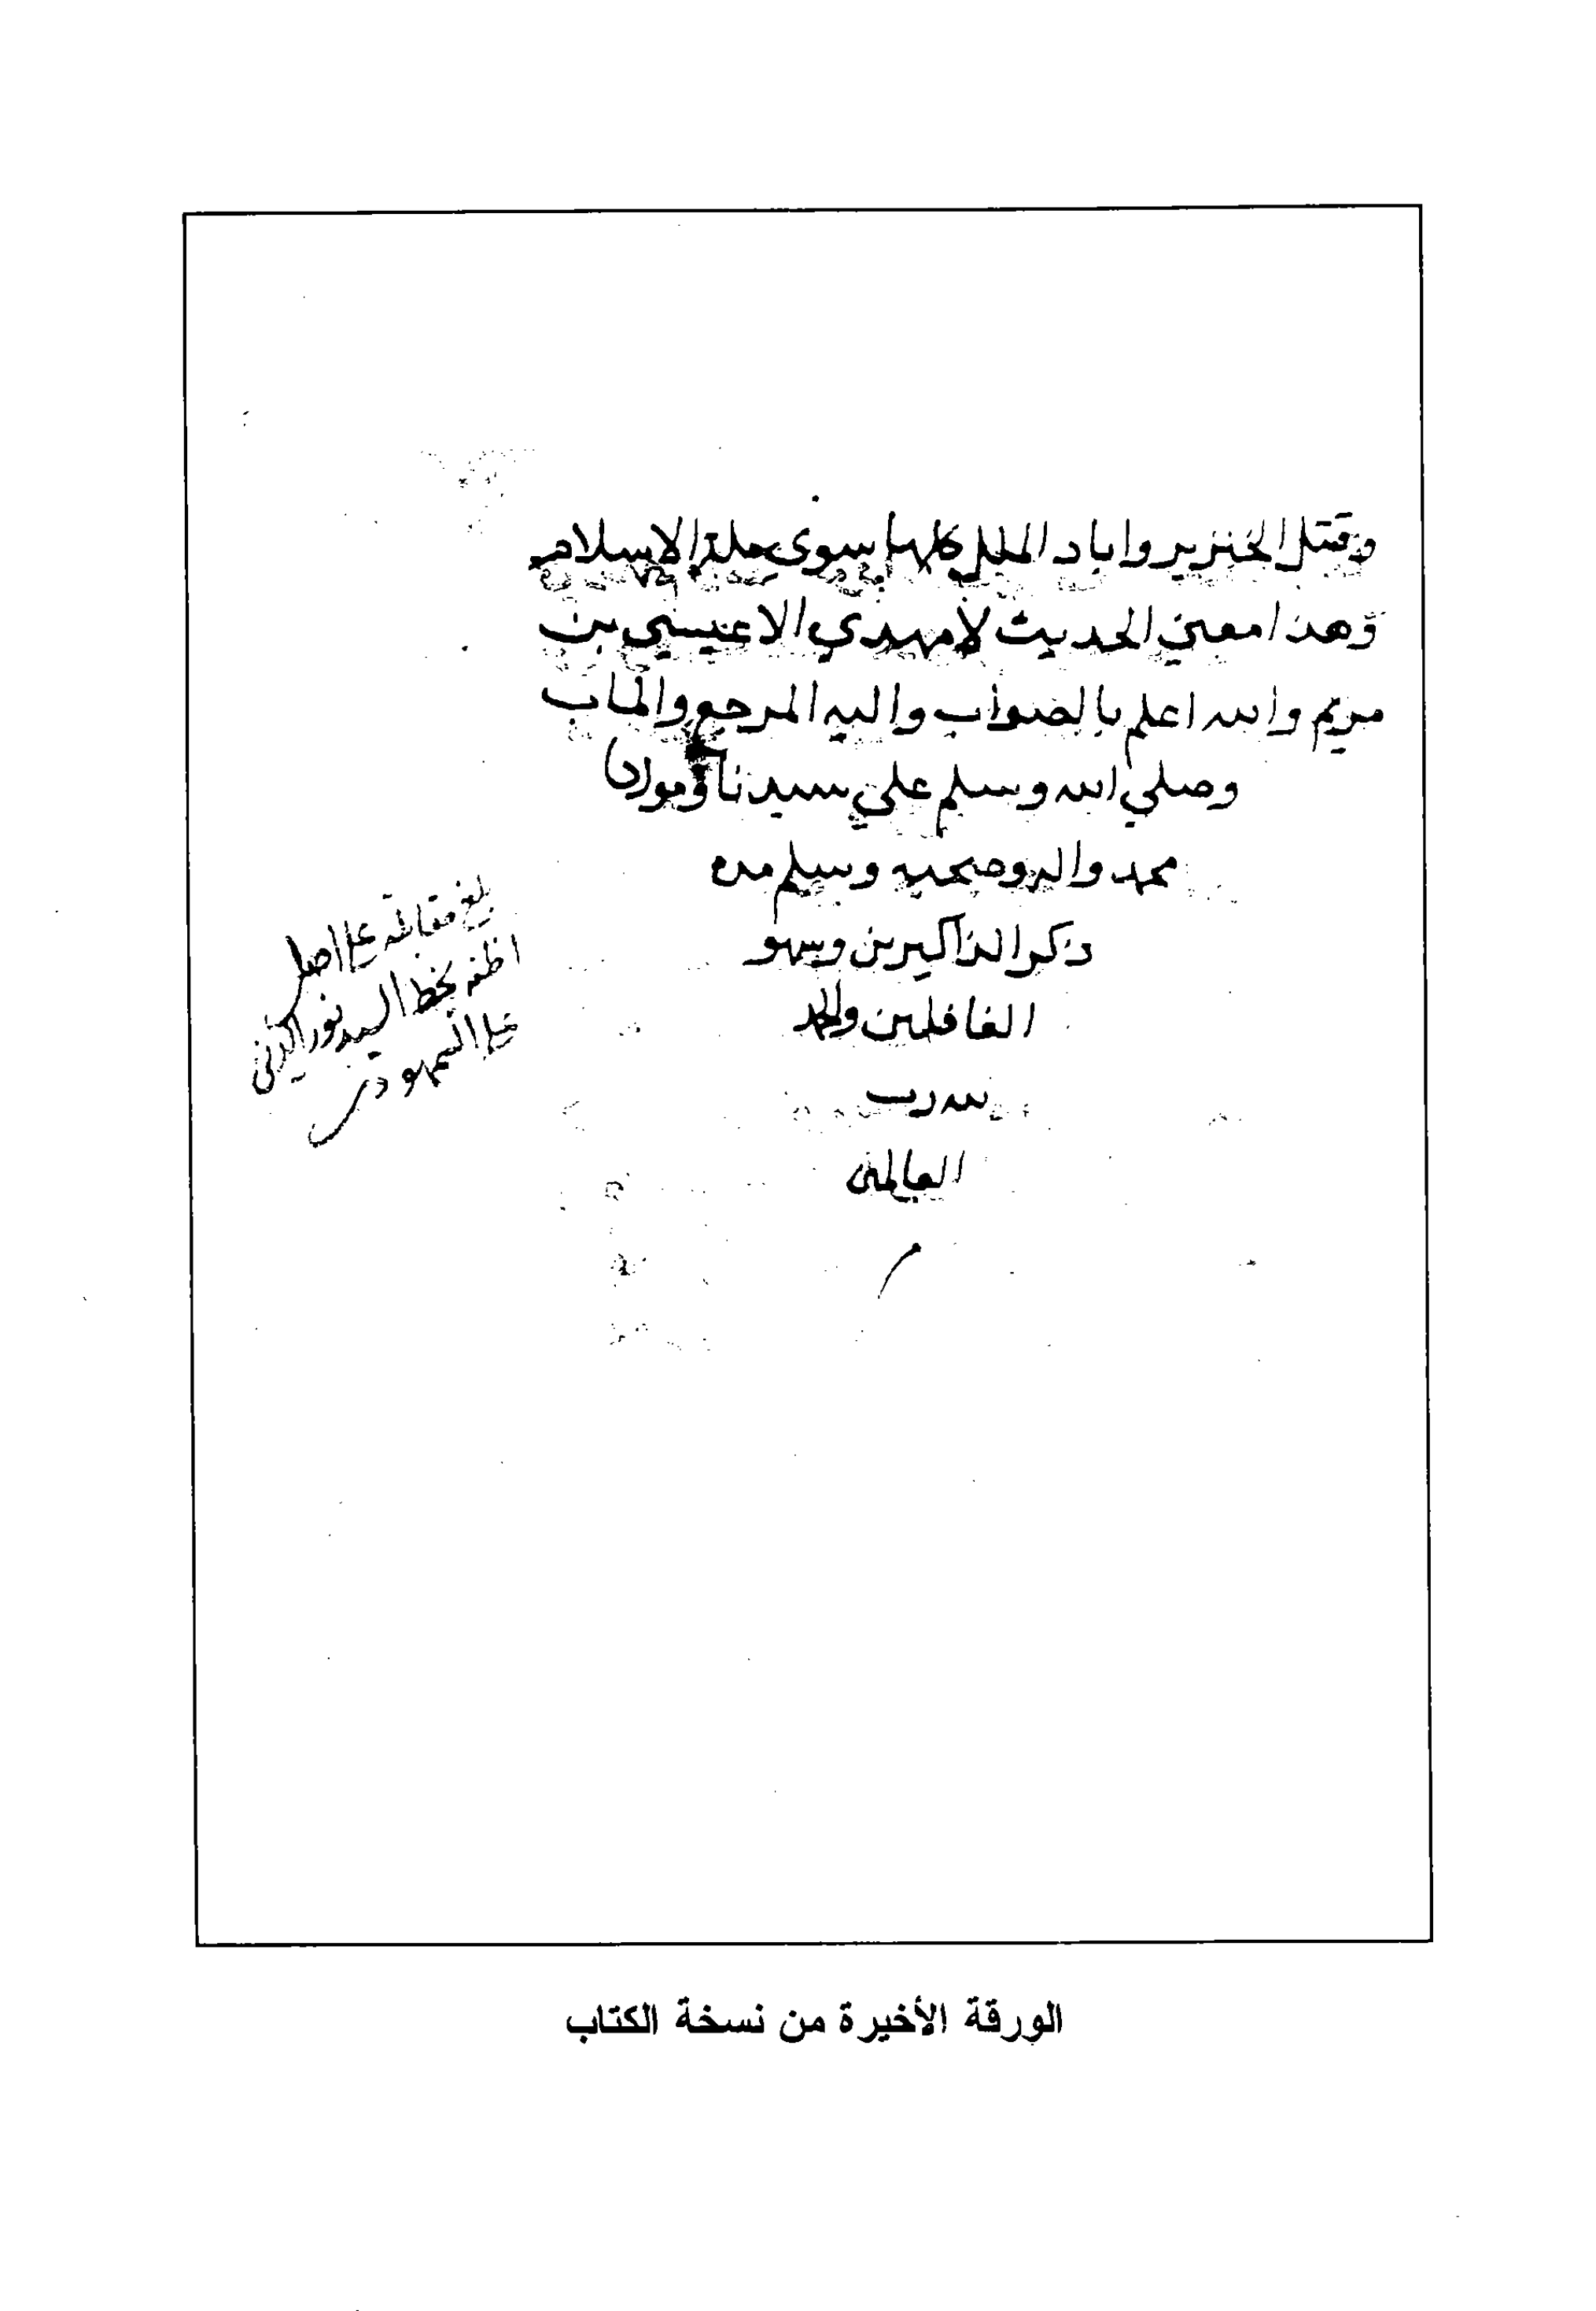 وقتل الخنزير واباد الملل كلها سوى ملة الاسلام
وهذا معني الحديث لامهدي الا عيسي بن
مريم والله اعلم بالصواب واليه المرجع والماب
وصلي الله وسلم علي سيدنا ومولانا
محمد واله وصحبه وسلم مده
ذكر الذاكرين وسهو
الغافلين والحمد
لله رب
العالمين
بلغ مقابلة على اصل
اظنه بخط السيد نور الدين
على السمهودي
الورقة الأخيرة من نسخة الكتاب